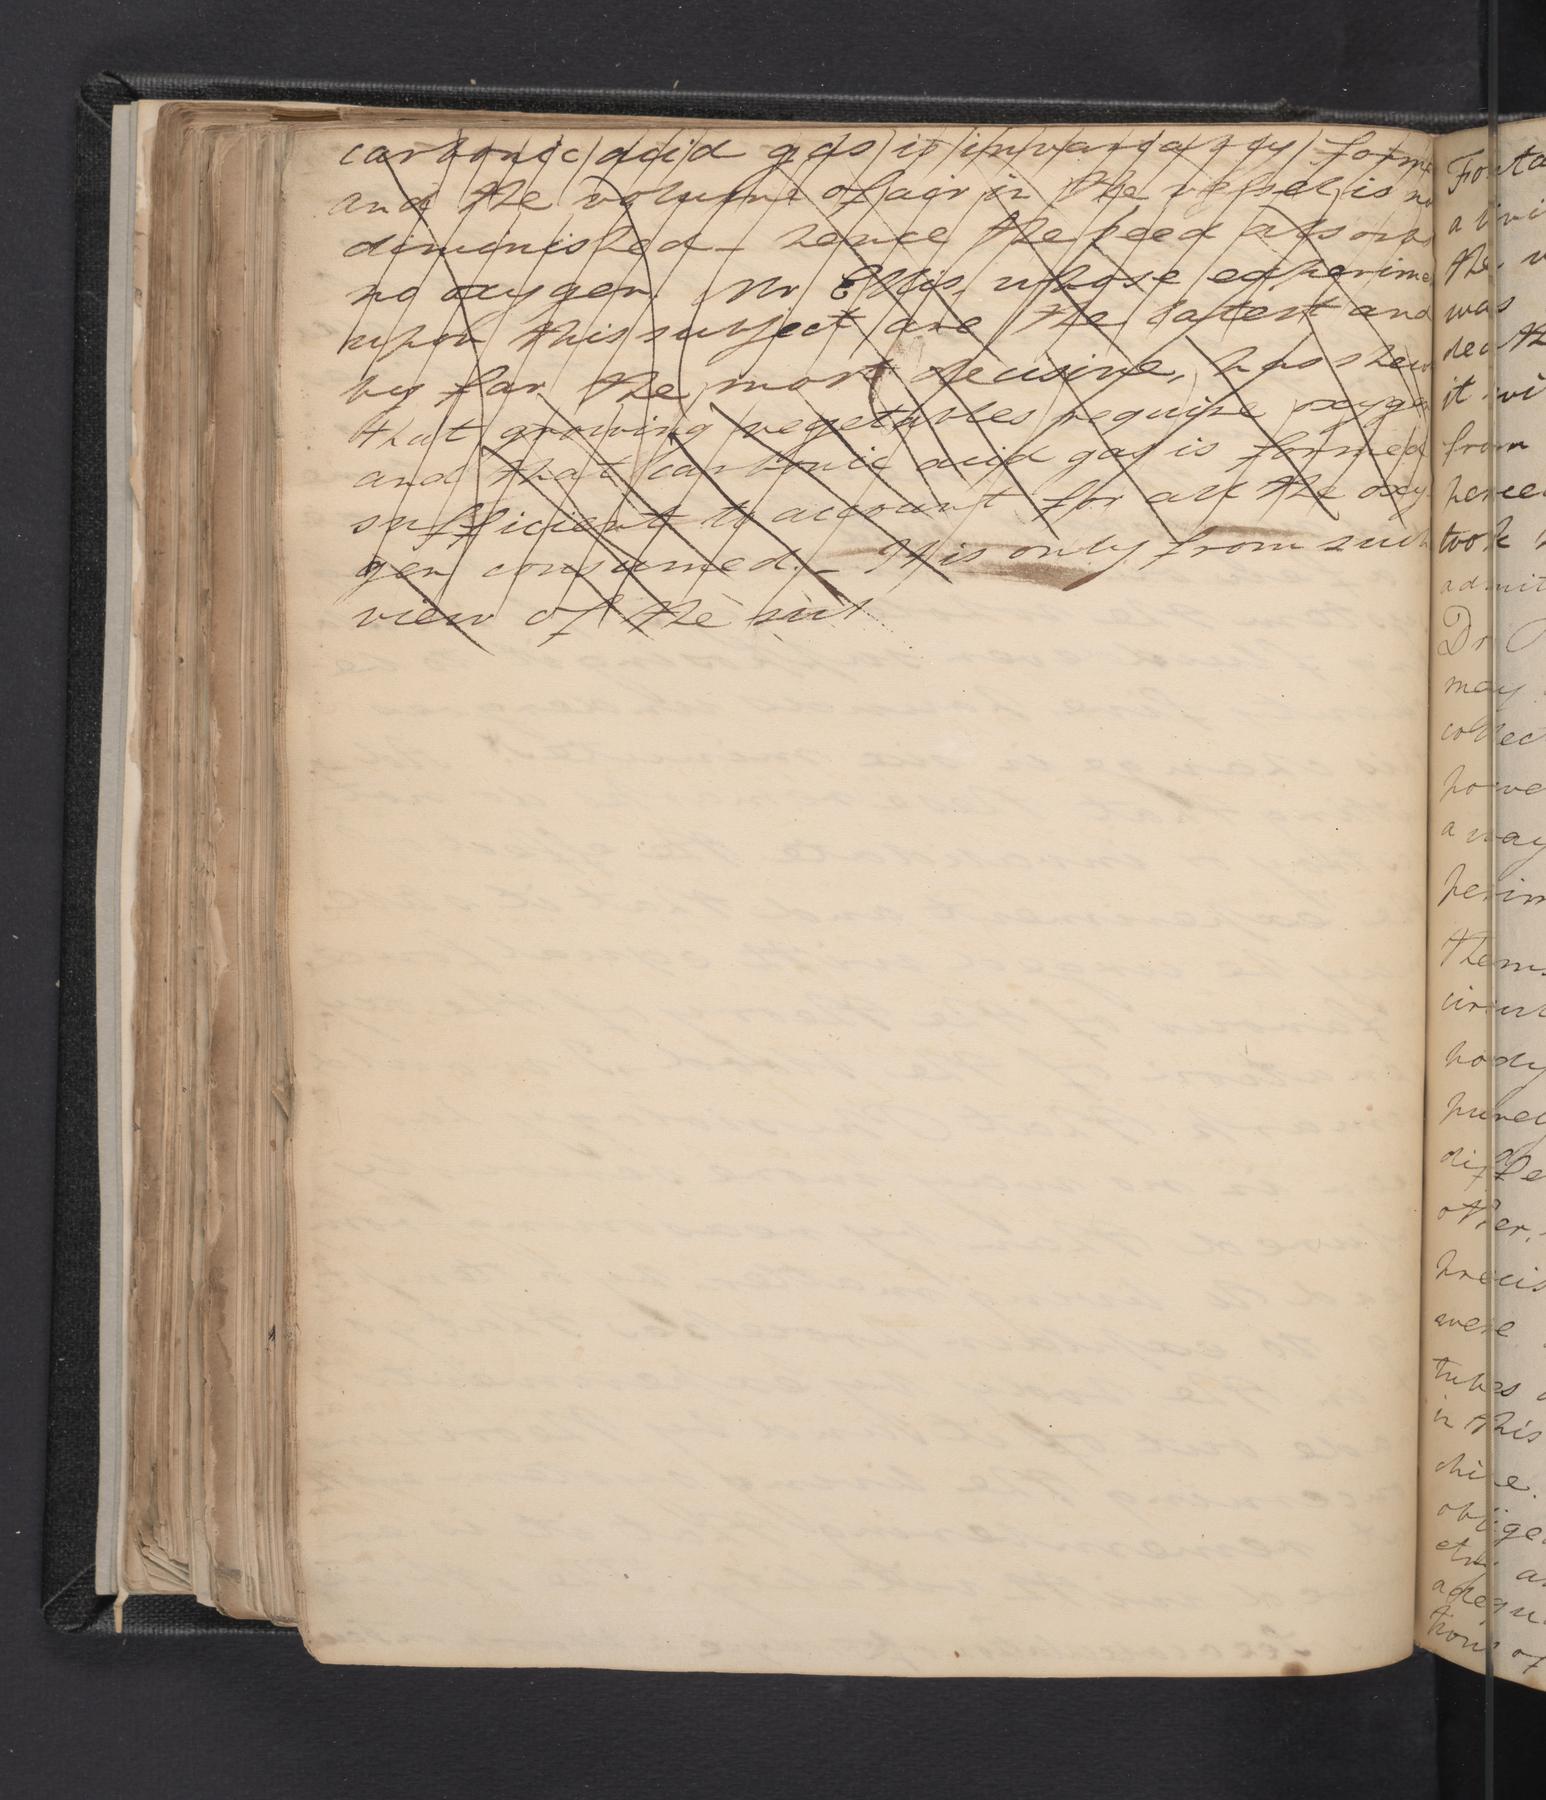 carbonic acid gas is invariably forme
and the volume of air in the vessel is no
diminished – hence the seed absorbs
no oxygen. Mr Ellis, whose experime
upon this subject are the latest and
by far the most decisive, has shew
that growing vegetables require oxyge
and that carbonic acid gas is formed
sufficient to account for all the oxy
gen consumed. – It is only from such
view of the sub
Fonta
a livi
the
was
death
it wi
from
percei
took
admit
Dr
may
collec
powe
away
perim
thems
circul
body
purely
diffe
other.
precis
were
tubes
in this
chine.
oblige
etry
adequ
tions of